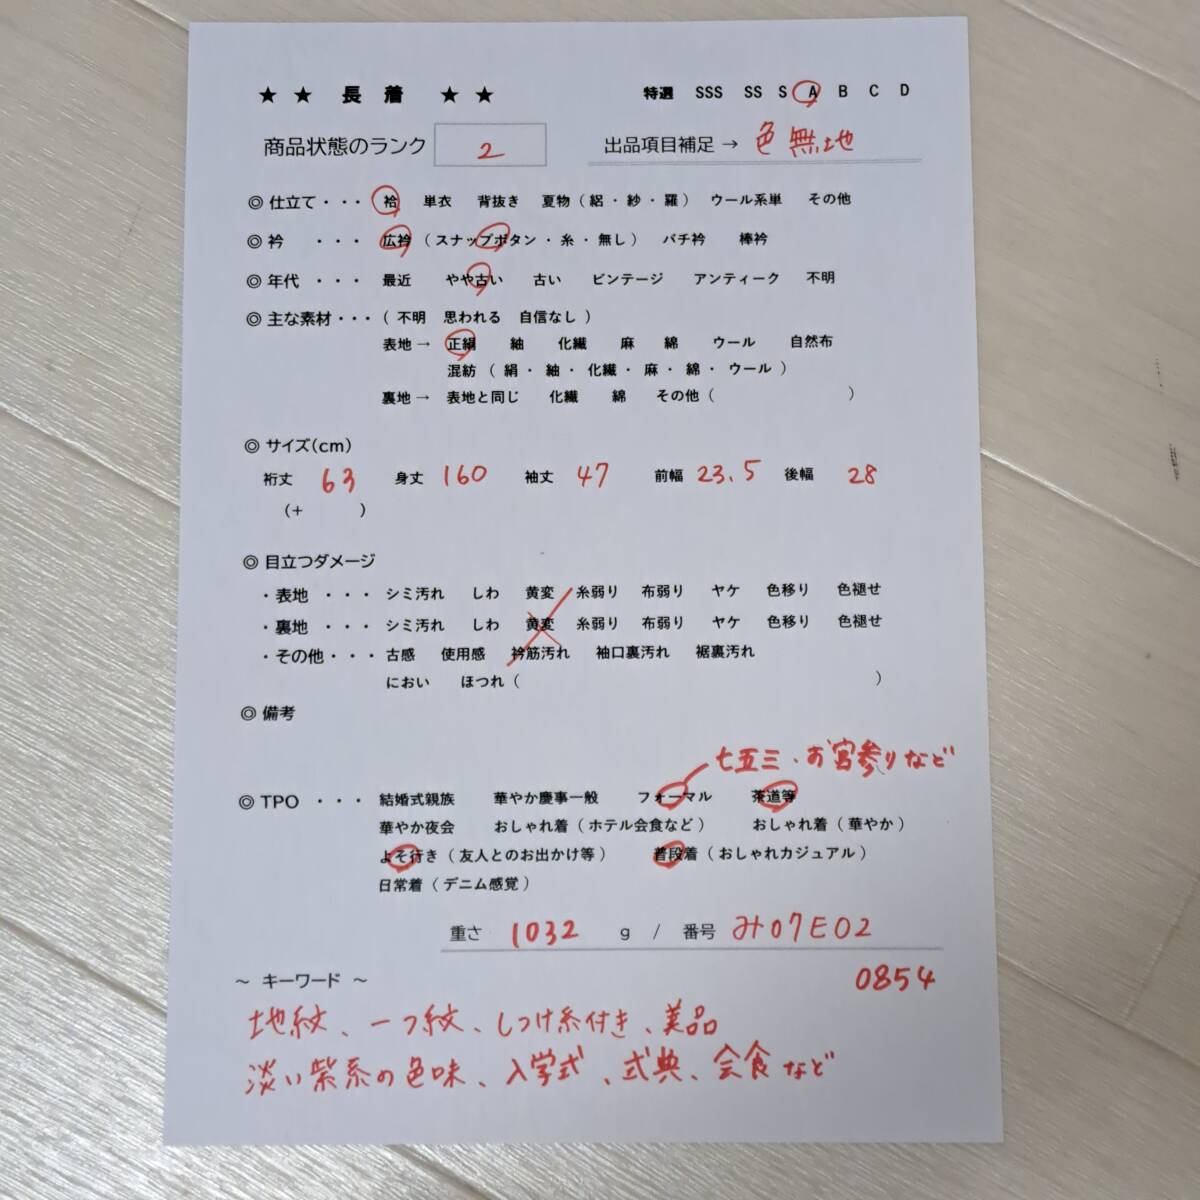 ★ ★ 長 着 ★ ★ 特選 SSS SS S A B C D
商品状態のランク 2 出品項目補足 → 色無地
◎ 仕立て・・・ 袷 単衣 背抜き 夏物 ( 絽 ・ 紗 ・ 羅 ) ウール系単 その他
◎ 衿 ・・・ 広衿 ( スナップボタン ・ 糸 ・ 無し ) バチ衿 棒衿
◎ 年代 ・・・ 最近 やや古い 古い ビンテージ アンティーク 不明
◎ 主な素材・・・ ( 不明 思われる 自信なし )
表地 → 正絹 紬 化繊 麻 綿 ウール 自然布
混紡 ( 絹 ・ 紬 ・ 化繊 ・ 麻 ・ 綿 ・ ウール )
裏地 → 表地と同じ 化繊 綿 その他 ( )
◎ サイズ(cm)
裄丈 63 身丈 160 袖丈 47 前幅 23.5 後幅 28
(+ )
◎ 目立つダメージ
・表地 ・・・ シミ汚れ しわ 黄変 糸弱り 布弱り ヤケ 色移り 色褪せ
・裏地 ・・・ シミ汚れ しわ 黄変 糸弱り 布弱り ヤケ 色移り 色褪せ
・その他・・・ 古感 使用感 衿筋汚れ 袖口裏汚れ 裾裏汚れ
におい ほつれ ( )
◎ 備考
七五三・お宮参りなど
◎ TPO ・・・ 結婚式親族 華やか慶事一般 フォーマル 茶道等
華やか夜会 おしゃれ着 ( ホテル会食など ) おしゃれ着 ( 華やか )
よそ行き ( 友人とのお出かけ等 ) 普段着 ( おしゃれカジュアル )
日常着 ( デニム感覚 )
重さ 1032 g / 番号 み07E02
～ キーワード ～ 0854
地紋、一つ紋、しつけ糸付き、美品
淡い紫系の色味、入学式、式典、会食など